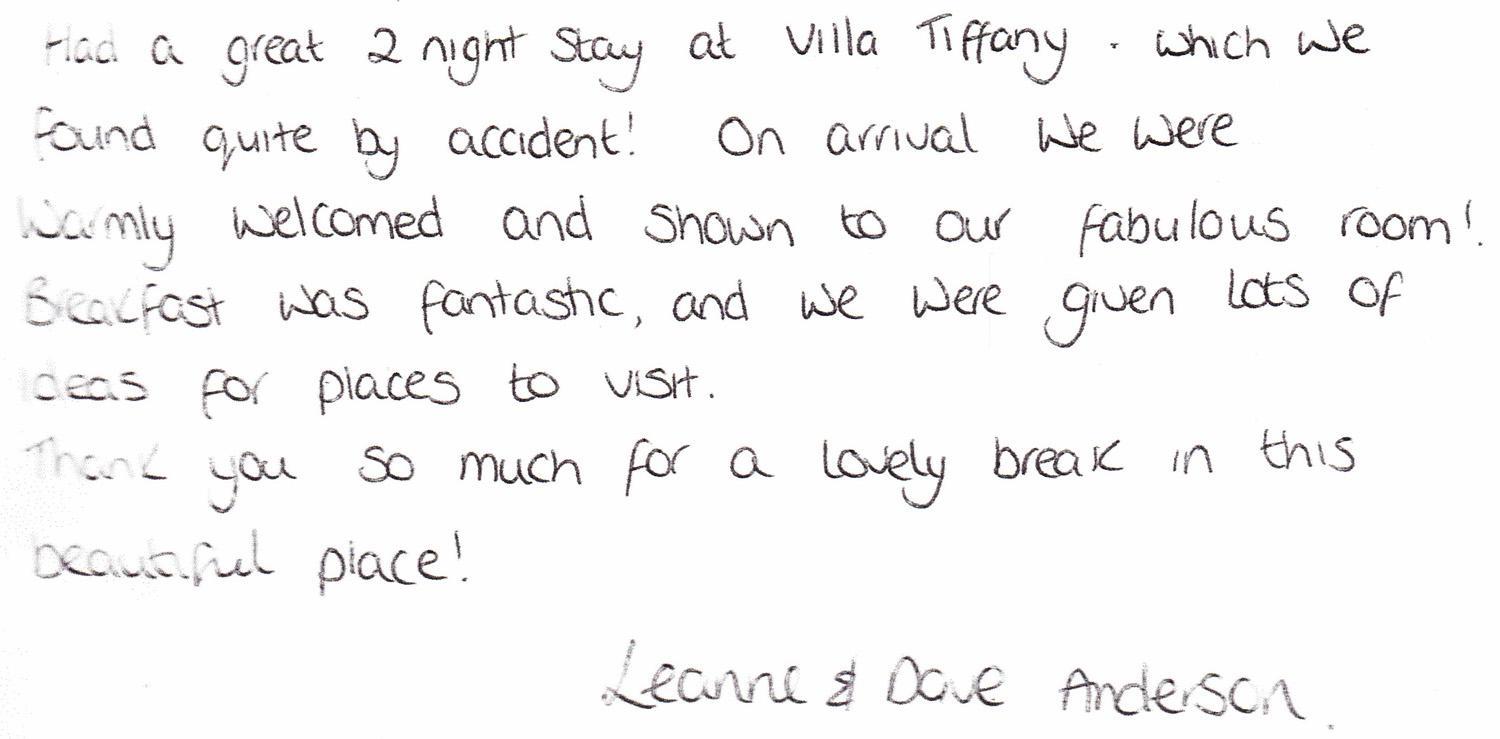 Had a great 2 night stay at Villa Tiffany . which we
found quite by accident! On arrival we were
warmly welcomed and shown to our fabulous room!
Breakfast was fantastic, and we were given lots of
ideas for places to visit.
Thank you so much for a lovely break in this
beautiful place!
Leanne & Dave Anderson.